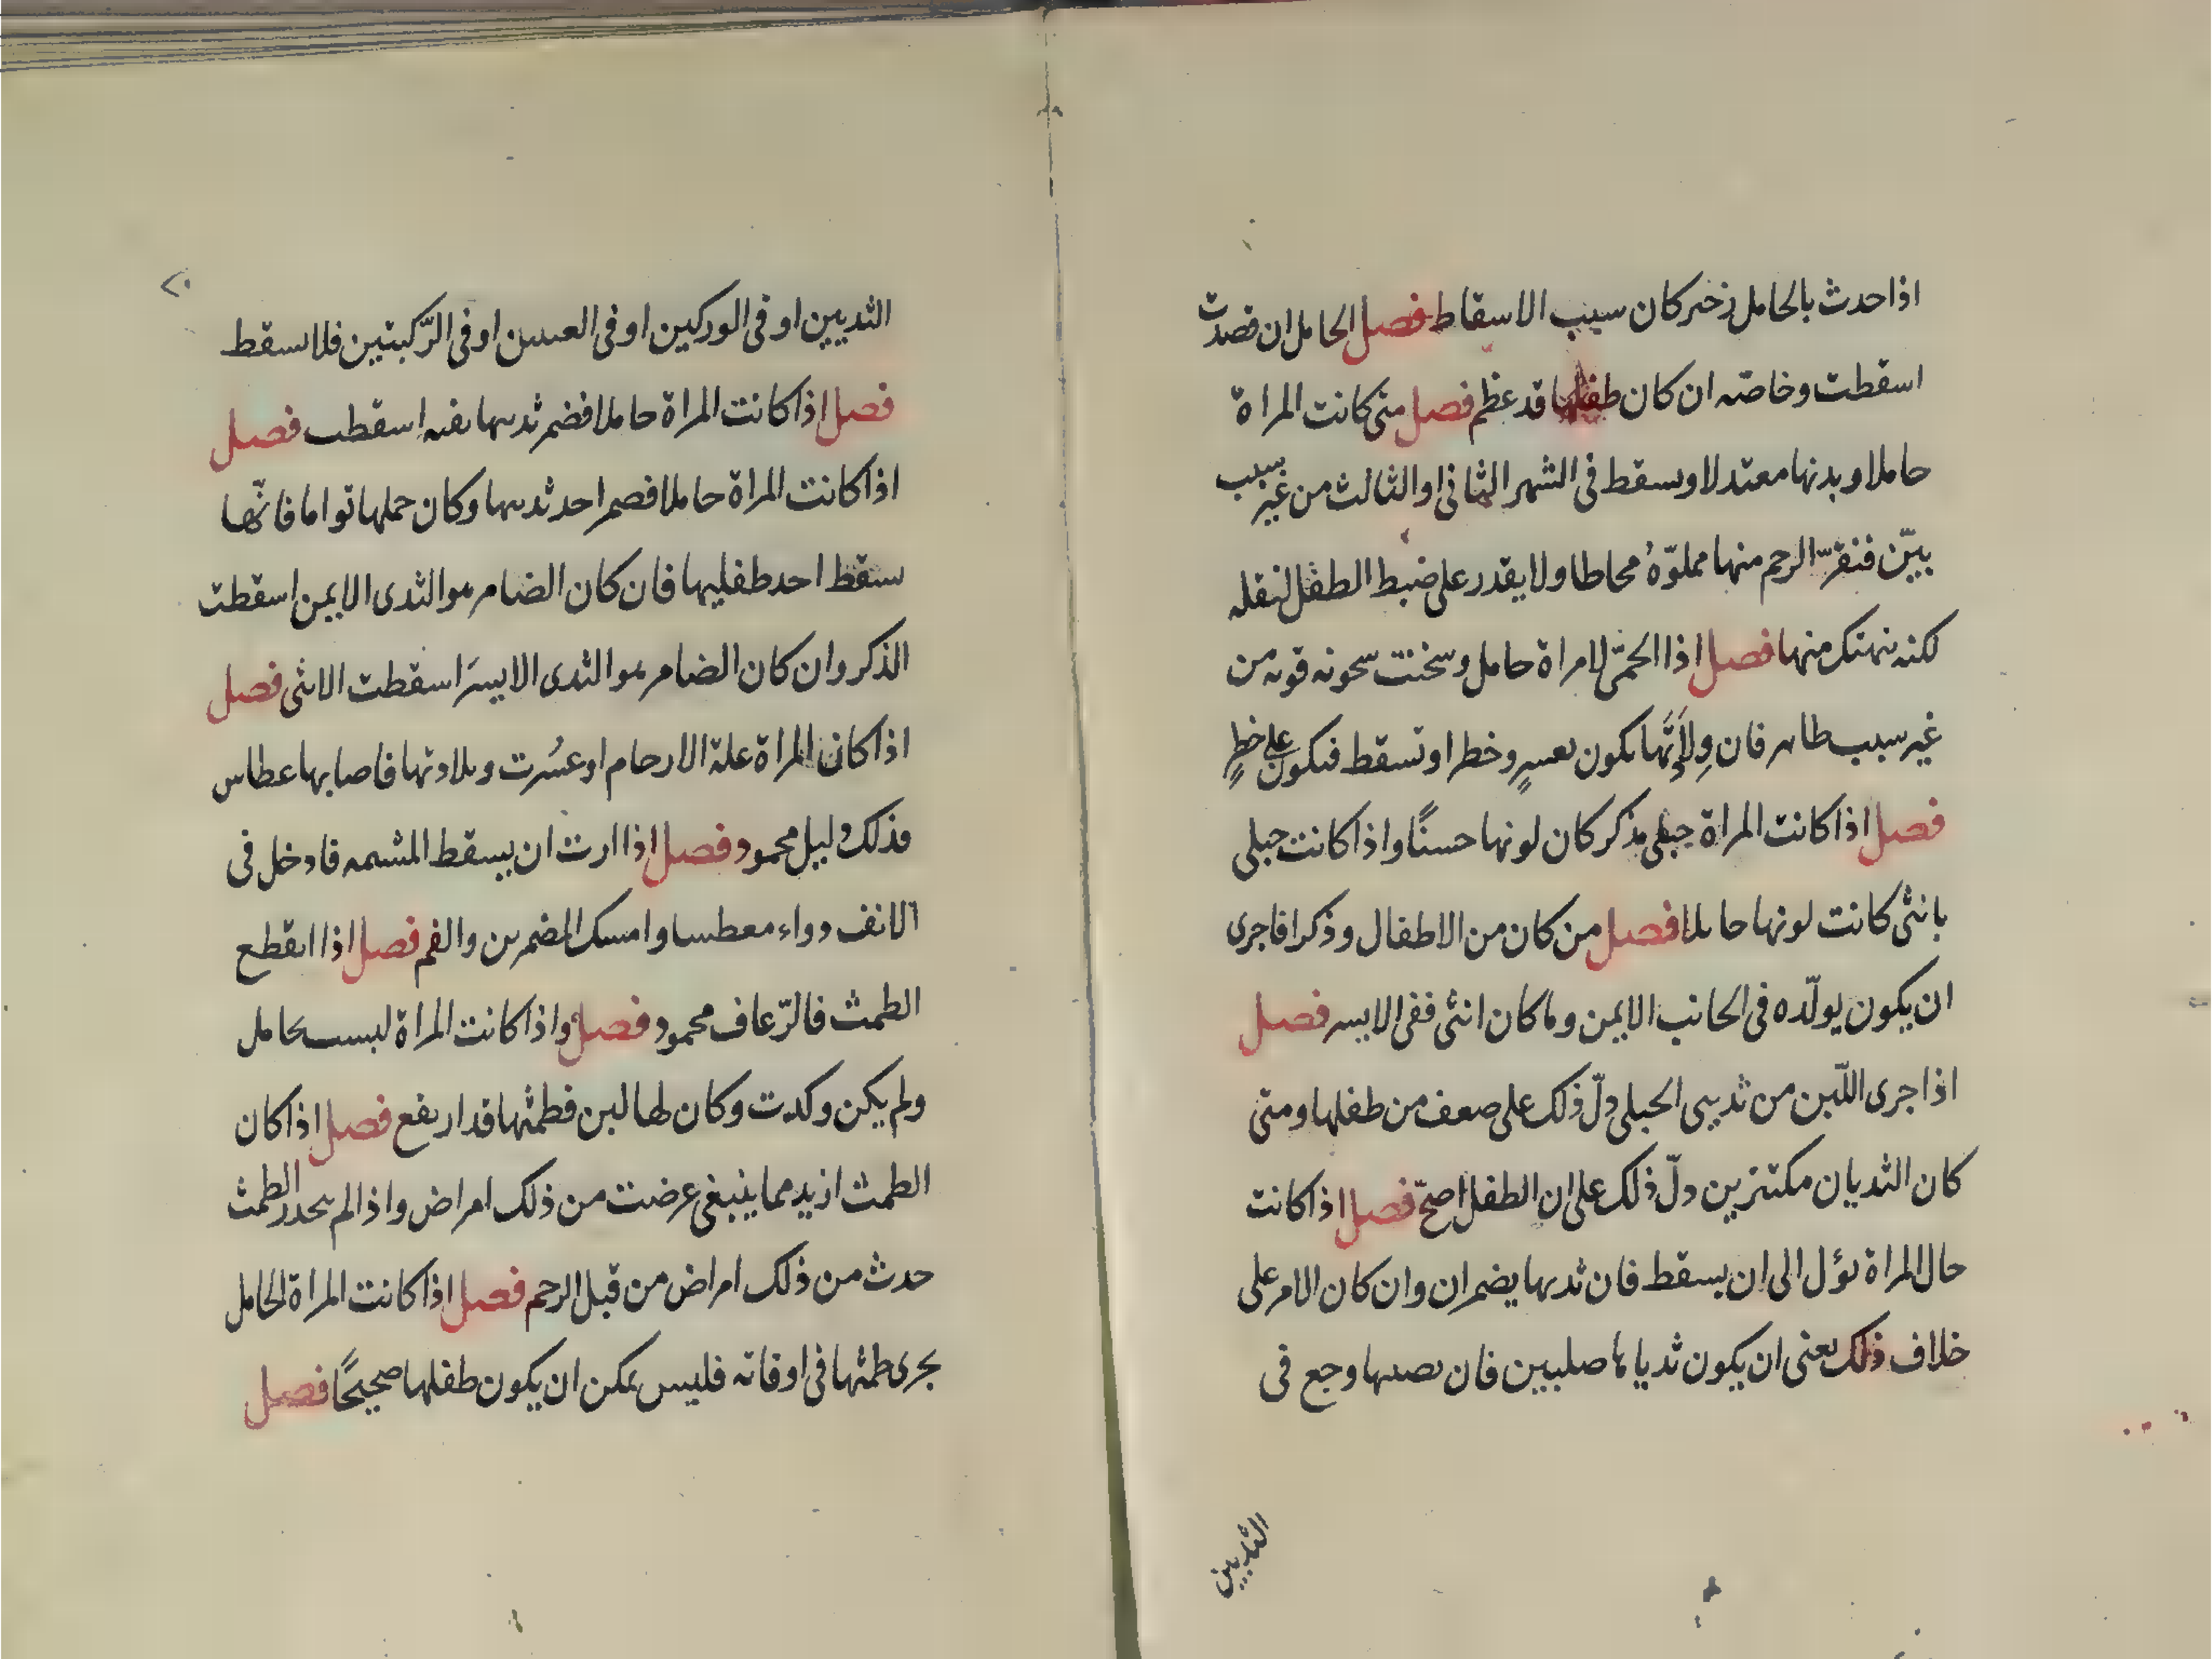 اذا حدث بالحامل زخير كان سبب الاسقاط فصل الحامل ان فصدت
اسقطت وخاصّه ان كان طفلها قد عظم فصل متى كانت المراة
حاملا وبدنها معتدلا وسقط فى الشهر الثانى او الثالث من غير سبب
بيّن فنقرّ الرحم منها مملوّهُ مخاطا ولا يقدر على ضبط الطفل لثقله
لكنه ينهتك منها فصل اذا الحمّى لامراة حامل وسخنت سخونه قويه من
غير سبب ظاهر فان وِلاَنَّها يكون بعسرٍ وخطر او تسقط فيكون على خطرٍ
فصل اذا كانت المراة حبلى بذكر كان لونها حسنًا واذا كانت حبلى
بانثى كانت لونها حائلا فصل من كان من الاطفال وذكرا فاجرى
ان يكون يولّده فى الجانب الايمن وما كان انثى ففى الايسر فصل
اذا جرى اللّبن من ثديى الحبلى دلّ ذلك على ضعف من طفلها ومتى
كان الثديان مكتنزين دلّ ذلك على ان الطفل اصحّ فصل اذا كانت
حال المراة يؤل الى ان يسقط فان ثديها يضمران وان كان الامر على
خلاف ذلك يعنى ان يكون ثدياها صلبين فان يصيبها وجع فى
الثديين
الثديين او فى الوركين او فى العينين او فى الرّكبتين فلا يسقط
فصل اذا كانت المراة حاملا فضمر ثدييها بغته اسقطت فصل
اذا كانت المراة حاملا فضمر احد ثدييها وكان حملها تواما فانّها
سقط احد طفليها فان كان الضامر هو الثدى الايمن اسقطت
الذكر وان كان الضامر هو الثدى الايسرَ اسقطت الانثى فصل
اذا كان المراة علة الارحام او عسُرت ولادتها فاصابها عطاس
فذلك دليل محمود فصل اذا ارت ان يسقط المشيمه فادخل فى
الانف دواء معطسا وامسك المنخرين والفم فصل اذا انقطع
الطمث فالرّعاف محمود فصل واذا كانت المراة ليست بحامل
ولم يكن وكدت وكان لها لبن فطمثها قد ارتفع فصل اذا كان
الطمث ازيد مما ينبغى عرضت من ذلك امراض واذا لم ينحدر الطمث
حدث من ذلك امراض من قبل الرحم فصل اذا كانت المراة الحامل
يجرى طمثها فى اوقاته فليس يمكن ان يكون طفلها صحيحًا فصل